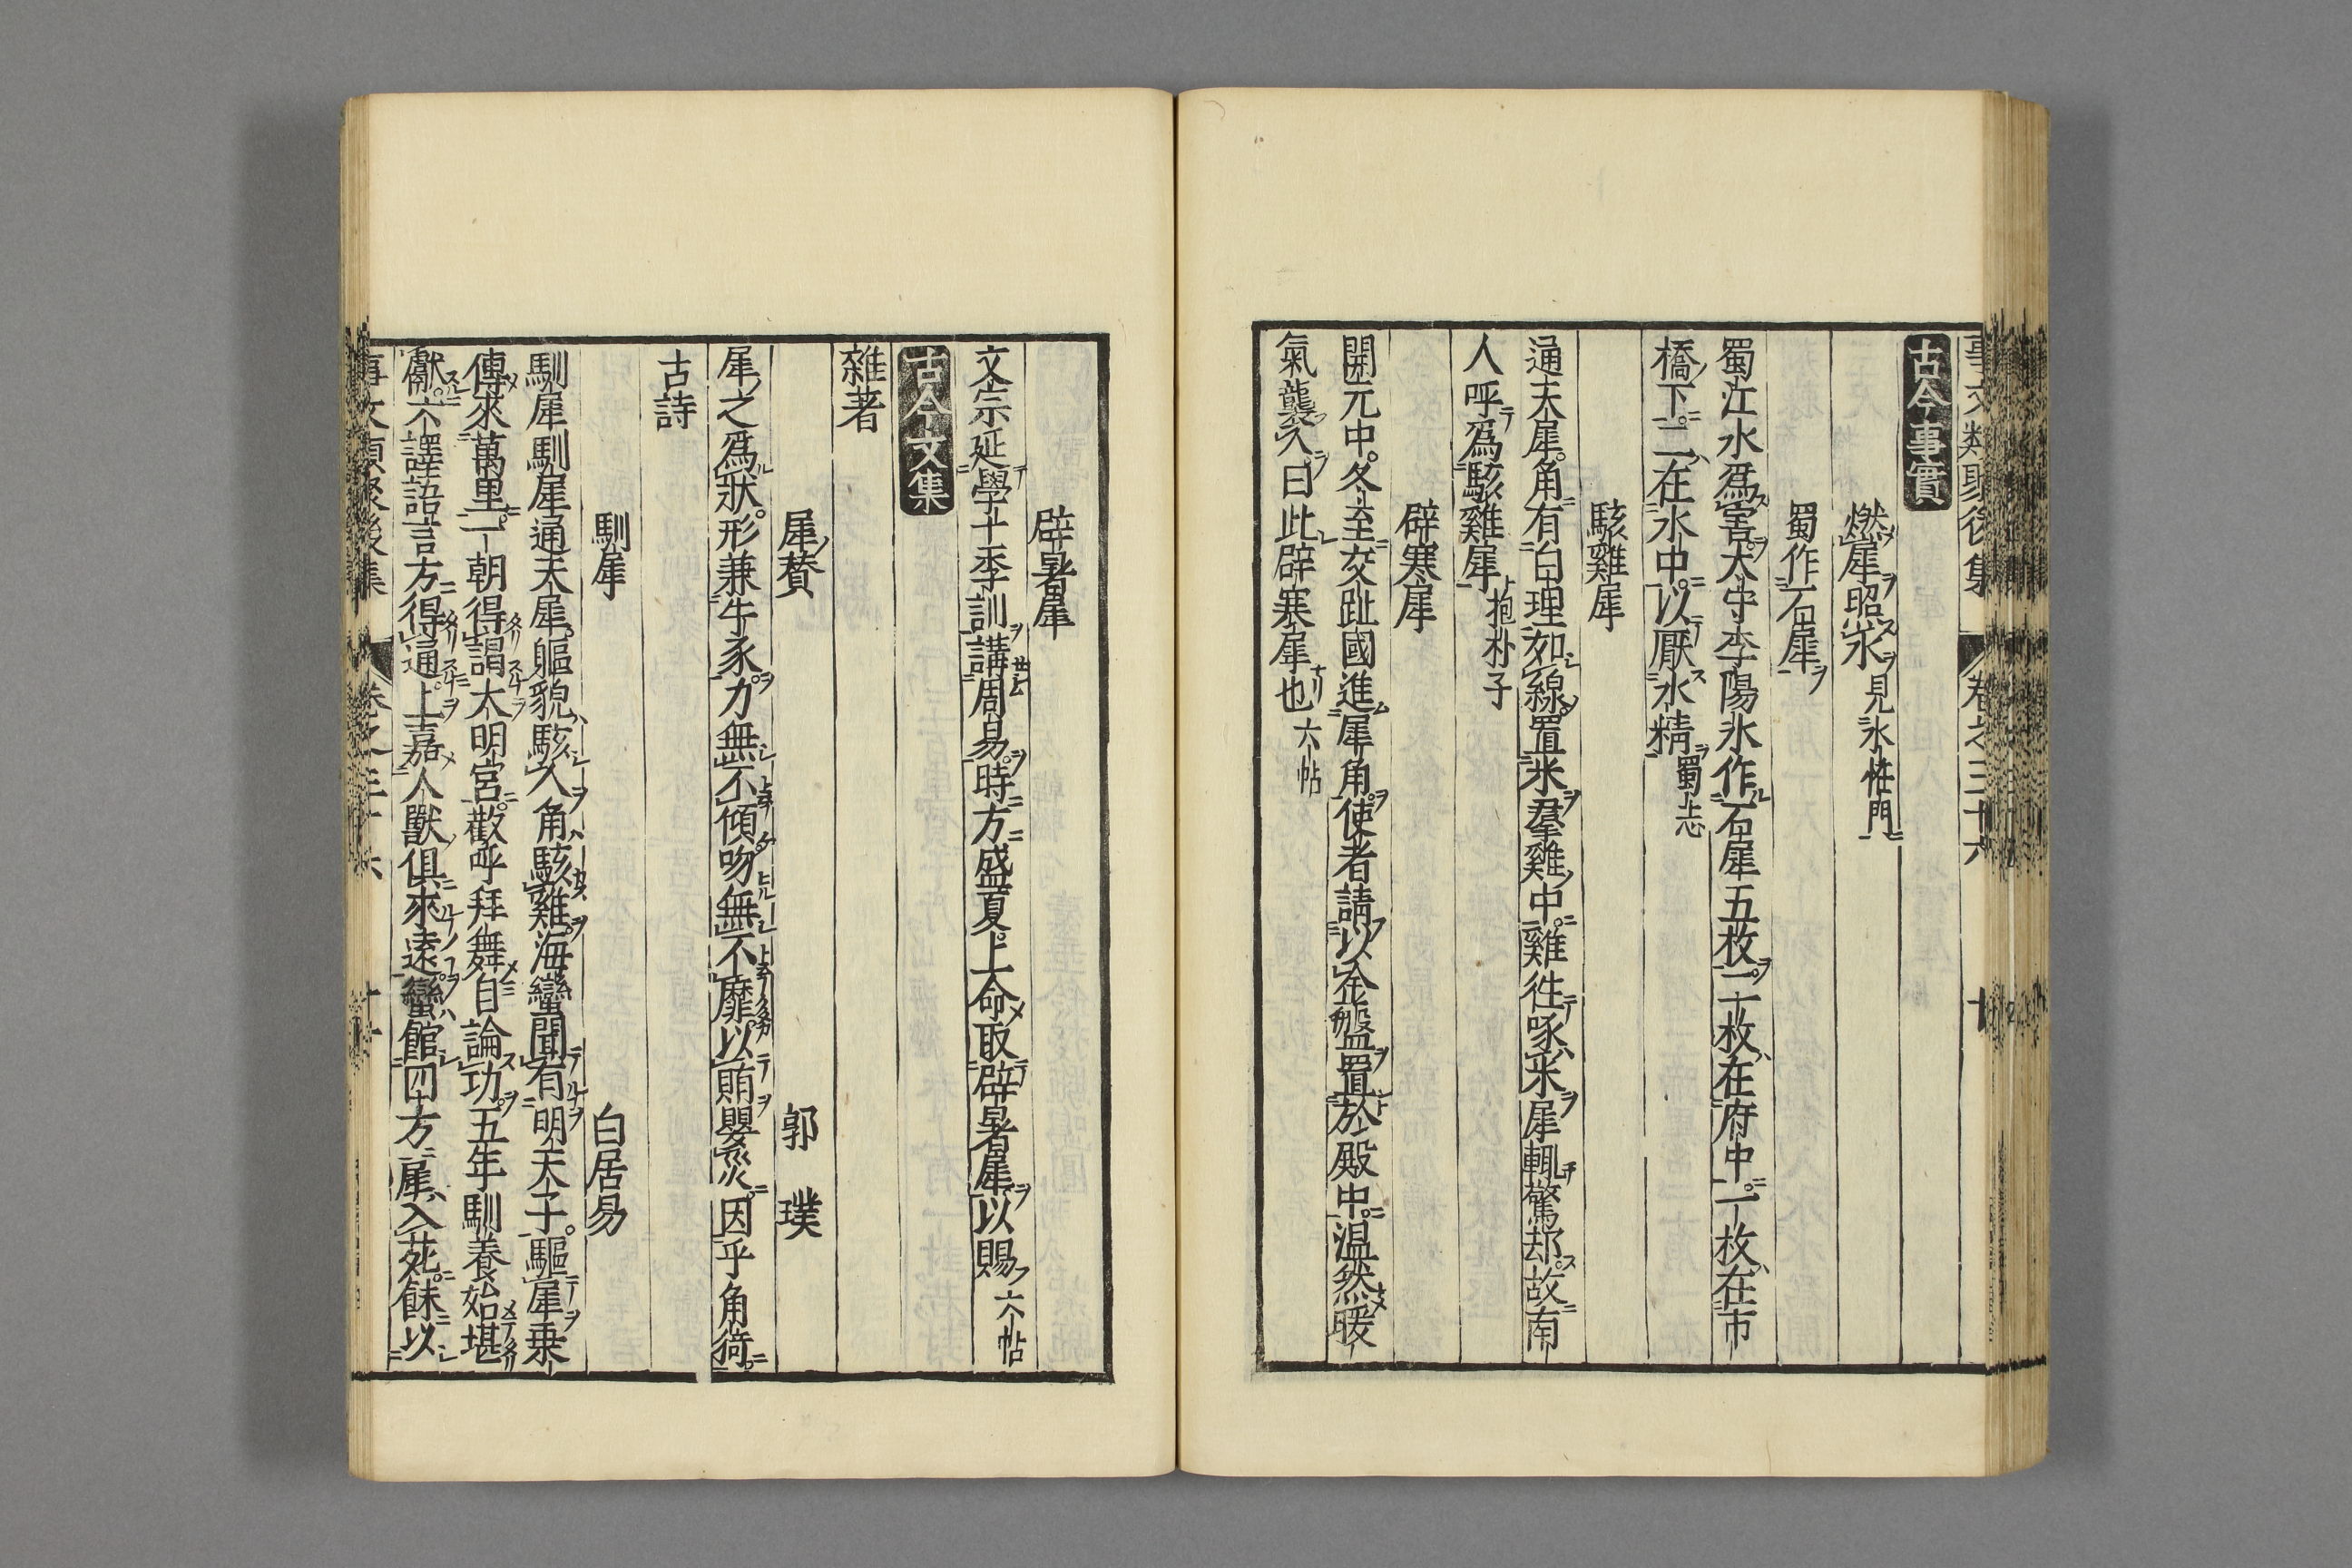 事文類聚後集 卷之三十六
古今事實
燃犀照水 見水恠門
蜀作石犀
蜀江水爲害太守李陽氷作石犀五枚二枚在府中一枚在市
橋下二在水中以厭水精 蜀志
駭雞犀
通天犀角有白理如線置米羣雞中雞徃啄米犀輒驚却故南
人呼爲駭雞犀 抱朴子
辟寒犀
開元中冬至交趾國進犀角使者請以金盤置於殿中温然暖
氣襲人曰此辟寒犀也 六帖
辟暑犀
文宗延學士季訓講周易時方盛夏上命取辟暑犀以賜 六帖
古今文集
雜著
犀贊 郭璞
犀之爲狀形兼牛豕力無不傾吻無不靡以賄嬰災因乎角掎
古詩
馴犀 白居易
馴犀馴犀通天犀軀貌駭人角駭雞海蠻聞有明天子驅犀乗
傳來萬里一朝得謁大明宮歡呼拜舞自論功五年馴養始堪
獻六譯語言方得通上嘉人獸俱來遠蠻館四方犀入苑餗以
事文類聚後集 卷之三十六